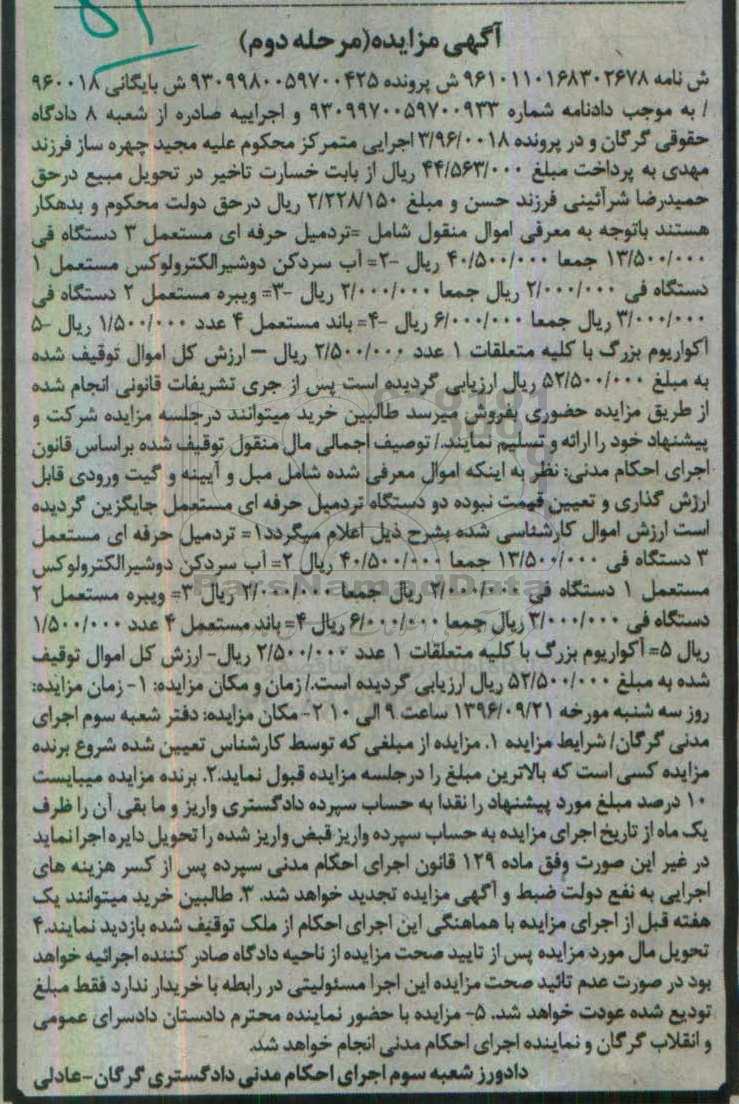 آگهی مزایده(مرحله دوم)
ش نامه ۹۶۱۰۱۱۰۱۶۸۳۰۲۶۷۸ ش پرونده ۹۳۰۹۹۸۰۰۵۹۷۰۰۴۲۵ ش بایگانی ۹۶۰۰۱۸
/ به موجب دادنامه شماره ۹۳۰۹۹۷۰۰۵۹۷۰۰۹۳۳ و اجراییه صادره از شعبه ۸ دادگاه
حقوقی گرگان و در پرونده ۳/۹۶/۰۰۱۸ اجرایی متمرکز محکوم علیه مجید چهره ساز فرزند
مهدی به پرداخت مبلغ ۴۴/۵۶۳/۰۰۰ ریال از بابت خسارت تاخیر در تحویل مبیع درحق
حمیدرضا شرآئینی فرزند حسن و مبلغ ۲/۲۲۸/۱۵۰ ریال درحق دولت محکوم و بدهکار
هستند باتوجه به معرفی اموال منقول شامل =تردمیل حرفه ای مستعمل ۳ دستگاه فی
۱۳/۵۰۰/۰۰۰ جمعا ۴۰/۵۰۰/۰۰۰ ریال -۲= آب سردکن دوشیرالکترولوکس مستعمل ۱
دستگاه فی ۲/۰۰۰/۰۰۰ ریال جمعا ۲/۰۰۰/۰۰۰ ریال -۳= ویبره مستعمل ۲ دستگاه فی
۳/۰۰۰/۰۰۰ ریال جمعا ۶/۰۰۰/۰۰۰ ریال -۴= باند مستعمل ۴ عدد ۱/۵۰۰/۰۰۰ ریال -۵
آکواریوم بزرگ با کلیه متعلقات ۱ عدد ۲/۵۰۰/۰۰۰ ریال – ارزش کل اموال توقیف شده
به مبلغ ۵۲/۵۰۰/۰۰۰ ریال ارزیابی گردیده است پس از جری تشریفات قانونی انجام شده
از طریق مزایده حضوری بفروش میرسد طالبین خرید میتوانند درجلسه مزایده شرکت و
پیشنهاد خود را ارائه و تسلیم نمایند./ توصیف اجمالی مال منقول توقیف شده براساس قانون
اجرای احکام مدنی: نظر به اینکه اموال معرفی شده شامل مبل و آیینه و گیت ورودی قابل
ارزش گذاری و تعیین قیمت نبوده دو دستگاه تردمیل حرفه ای مستعمل جایگزین گردیده
است ارزش اموال کارشناسی شده بشرح ذیل اعلام میگردد۱= تردمیل حرفه ای مستعمل
۳ دستگاه فی ۱۳/۵۰۰/۰۰۰ جمعا ۴۰/۵۰۰/۰۰۰ ریال ۲= آب سردکن دوشیرالکترولوکس
مستعمل ۱ دستگاه فی ۲/۰۰۰/۰۰۰ ریال جمعا ۲/۰۰۰/۰۰۰ ریال ۳= ویبره مستعمل ۲
دستگاه فی ۳/۰۰۰/۰۰۰ ریال جمعا ۶/۰۰۰/۰۰۰ ریال ۴= باند مستعمل ۴ عدد ۱/۵۰۰/۰۰۰
ریال ۵= آکواریوم بزرگ با کلیه متعلقات ۱ عدد ۲/۵۰۰/۰۰۰ ریال- ارزش کل اموال توقیف
شده به مبلغ ۵۲/۵۰۰/۰۰۰ ریال ارزیابی گردیده است./ زمان و مکان مزایده: ۱- زمان مزایده:
روز سه شنبه مورخه ۱۳۹۶/۰۹/۲۱ ساعت ۹ الی ۱۰ ۲- مکان مزایده: دفتر شعبه سوم اجرای
مدنی گرگان/ شرایط مزایده ۱. مزایده از مبلغی که توسط کارشناس تعیین شده شروع برنده
مزایده کسی است که بالاترین مبلغ را درجلسه مزایده قبول نماید.۲. برنده مزایده میبایست
۱۰ درصد مبلغ مورد پیشنهاد را نقدا به حساب سپرده دادگستری واریز و ما بقی آن را ظرف
یک ماه از تاریخ اجرای مزایده به حساب سپرده واریز قبض واریز شده را تحویل دایره اجرا نماید
در غیر این صورت وفق ماده ۱۲۹ قانون اجرای احکام مدنی سپرده پس از کسر هزینه های
اجرایی به نفع دولت ضبط و آگهی مزایده تجدید خواهد شد. ۳. طالبین خرید میتوانند یک
هفته قبل از اجرای مزایده با هماهنگی این اجرای احکام از ملک توقیف شده بازدید نمایند.۴
تحویل مال مورد مزایده پس از تایید صحت مزایده از ناحیه دادگاه صادر کننده اجرائیه خواهد
بود در صورت عدم تائید صحت مزایده این اجرا مسئولیتی در رابطه با خریدار ندارد فقط مبلغ
تودیع شده عودت خواهد شد. ۵- مزایده با حضور نماینده محترم دادستان دادسرای عمومی
و انقلاب گرگان و نماینده اجرای احکام مدنی انجام خواهد شد.
دادورز شعبه سوم اجرای احکام مدنی دادگستری گرگان-عادلی
ParsNamadData